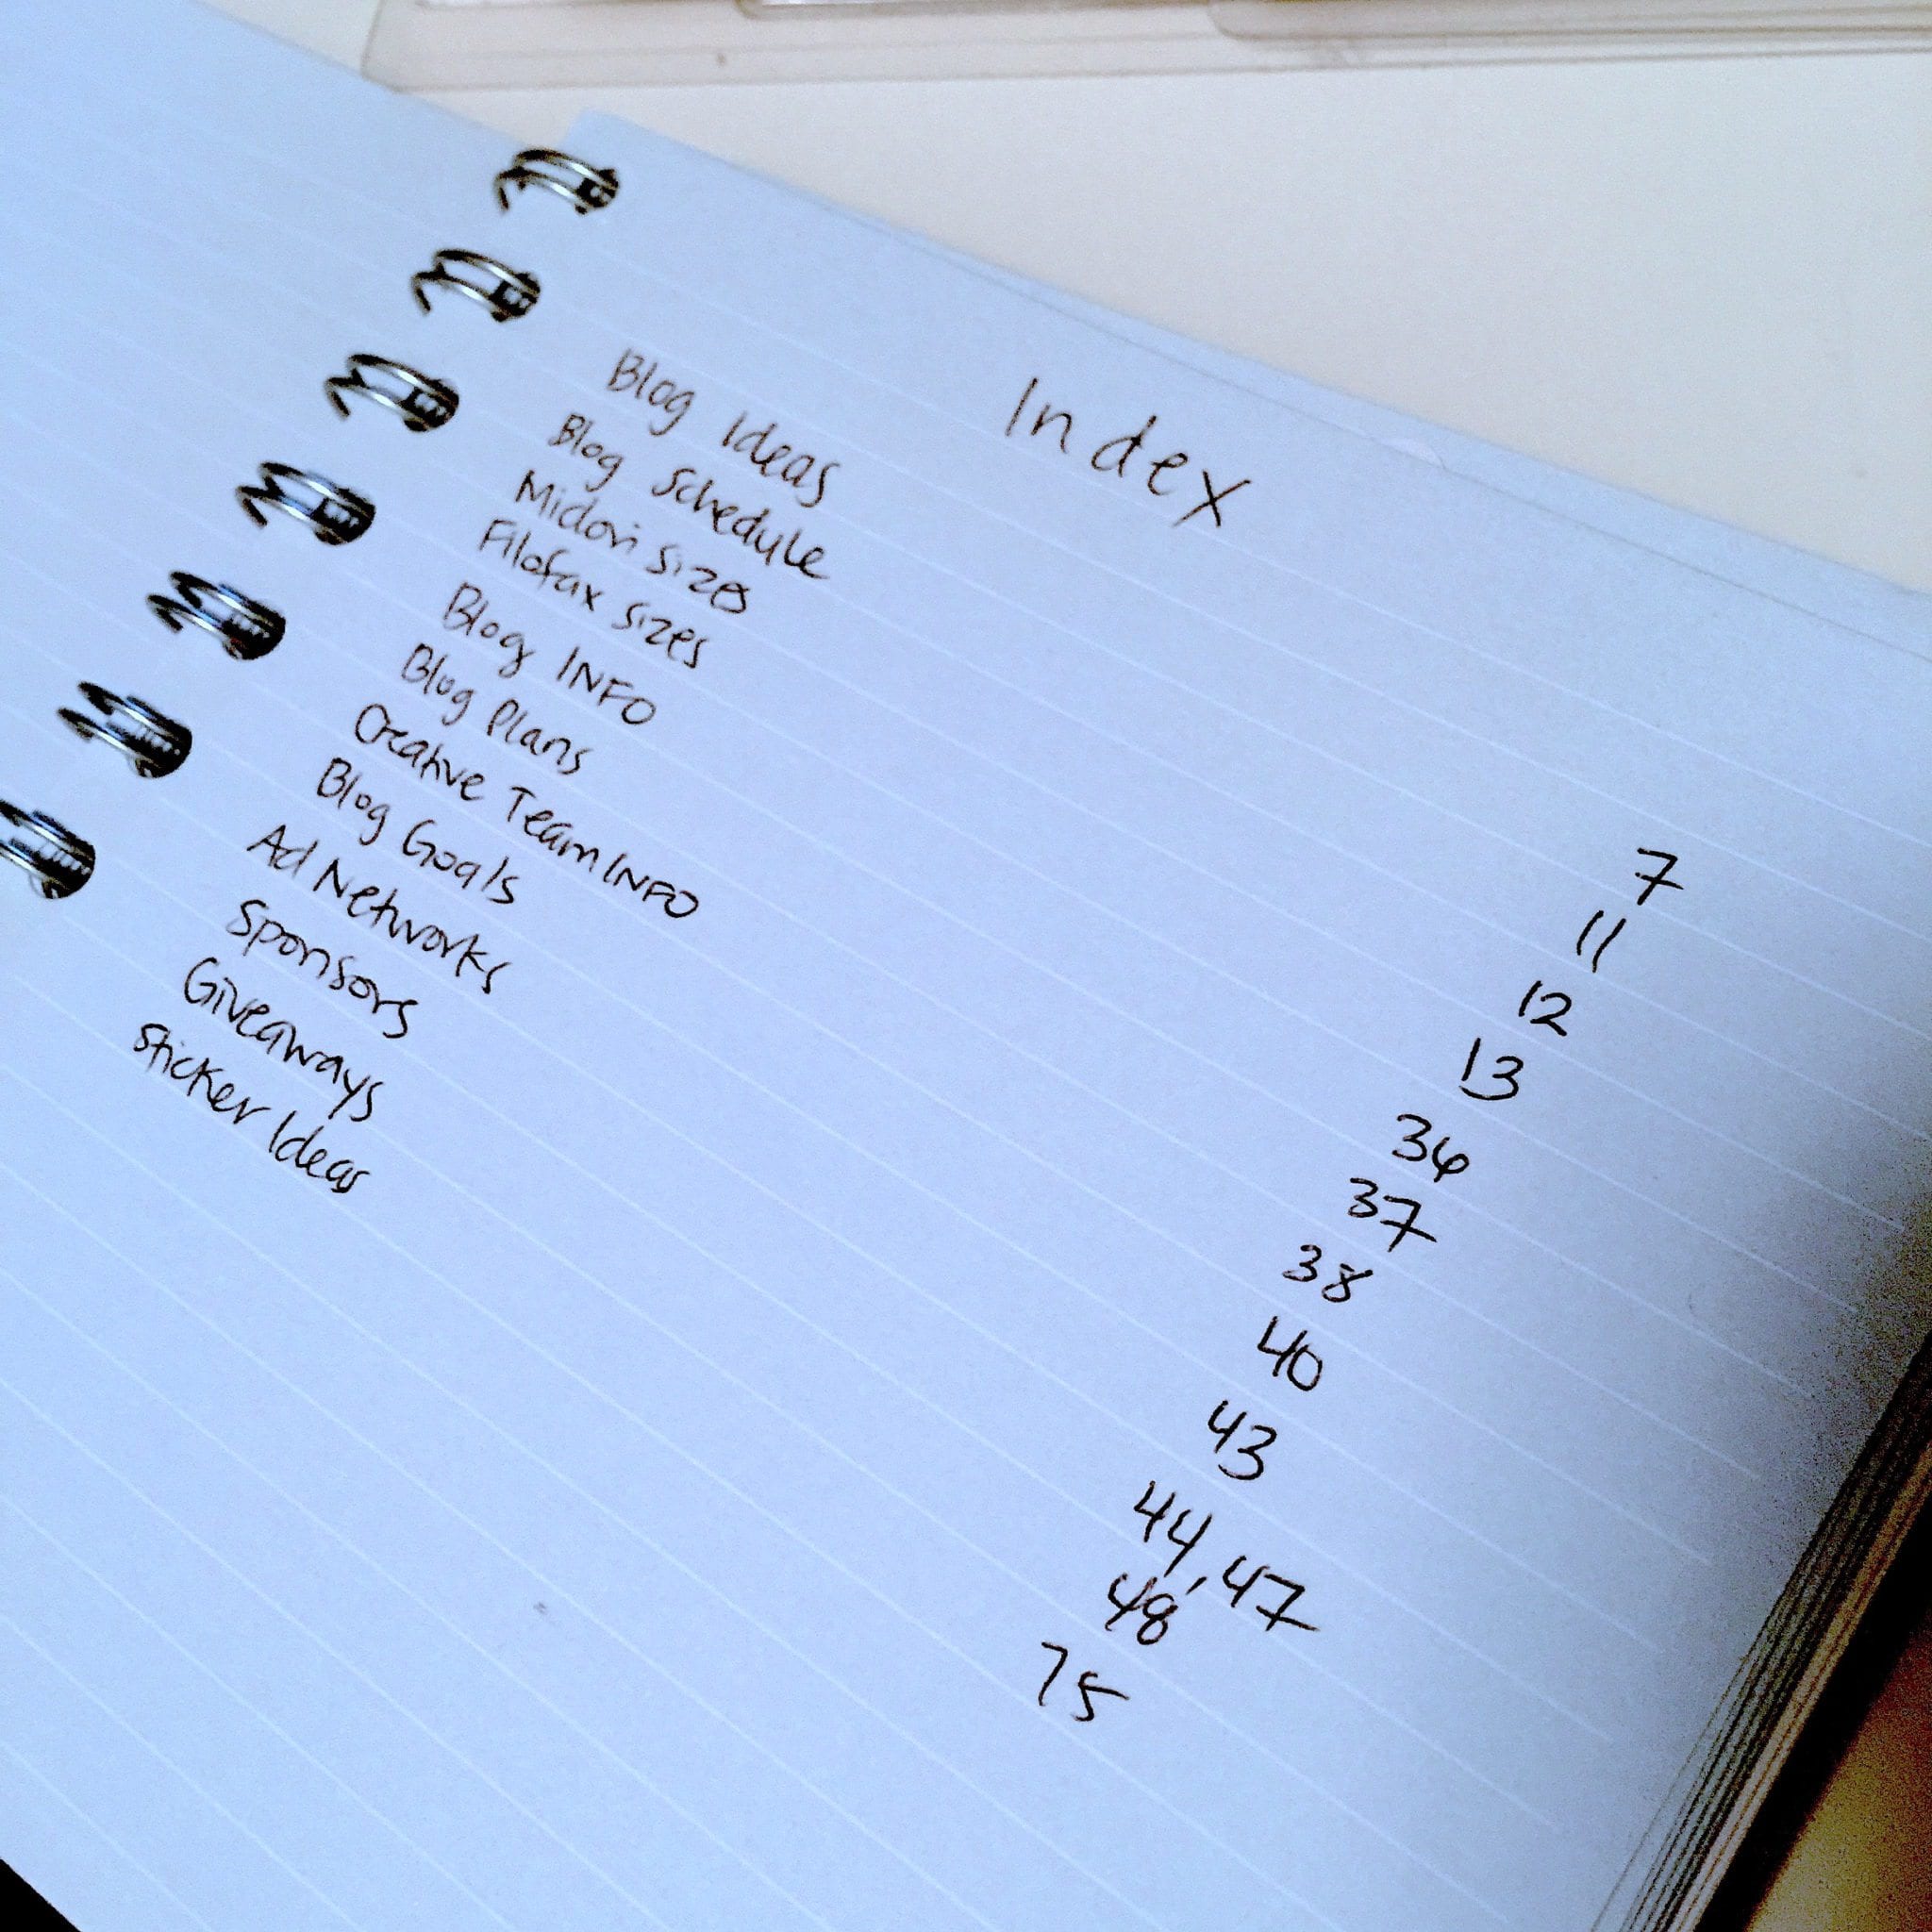 Index
Blog Ideas 7
Blog Schedule 11
Midori Sizes 12
Filofax Sizes 13
Blog INFO 36
Blog Plans 37
Creative Team INFO 38
Blog Goals 40
Ad Networks 43
Sponsors 44, 47
Giveaways 48
Sticker Ideas 75